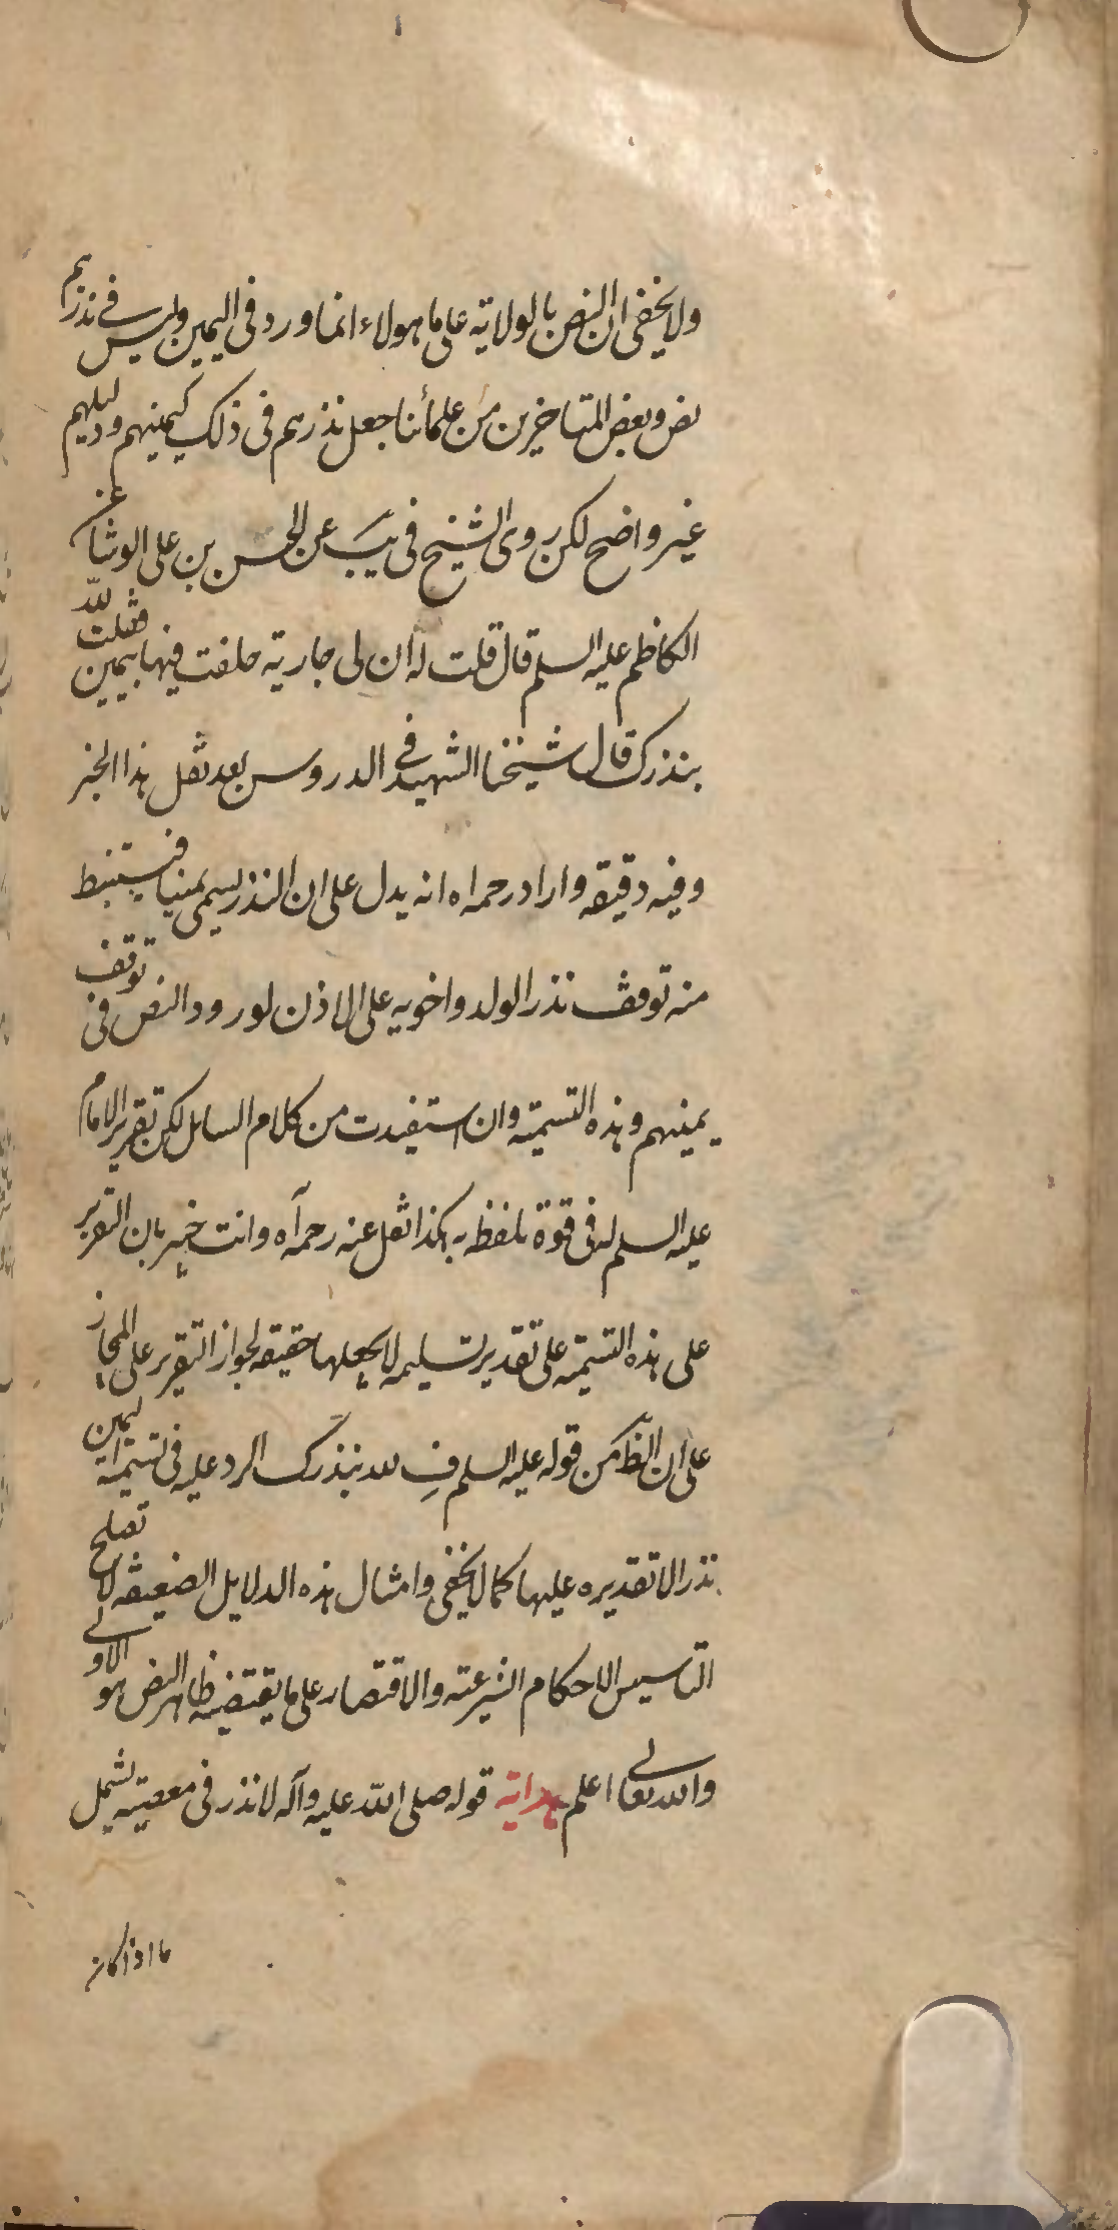 ولا يخفى ان النص بالولاية على ما هولاء انما ورد فى اليمين وليس في نذرهم
نص وبعض المتاخرين من علمائنا جعل نذرهم فى ذلك كيمينهم ودليلهم
غير واضح لكن روى الشيخ فى يب عن الحسن بن على الوشا عن
الكاظم عليه السلم قال قلت له ان لى جارية حلفت فيها بيمين فقلت لله
بنذرك قال شيخنا الشهيد في الدروس بعد نقل هذا الخبر
وفيه دقيقه واراد رحمه اه انه يدل على ان النذر يسمى يمينا فيستنبط
منه توقف نذر الولد واخويه على الاذن لورود النص فى توقف
يمينهم وهذه التسمية وان استفيدت من كلام السايل لكن تقرير الامام
عليه السلم له فى قوة تلفظه به هكذا نقل عنه رحمه اه وانت خبير بان التقرير
على هذه التسمية على تقدير تسليمه لا يجعلها حقيقه لجواز التقرير على المجاز
على ان الظ من قوله عليه السلم فِ لله بنذرك الرد عليه فى تسمية اليمين
نذرا لا تقديره عليها كما لا يخفى وامثال هذه الدلايل الضعيفه لا تصلح
التاسيس الاحكام الشرعية والاقتصار على ما يقتضيه ظاهر النص هو الاولى
والله تعالى اعلم هداية قوله صلى الله عليه وآله لا نذر فى معصية يشمل
ما اذا كان